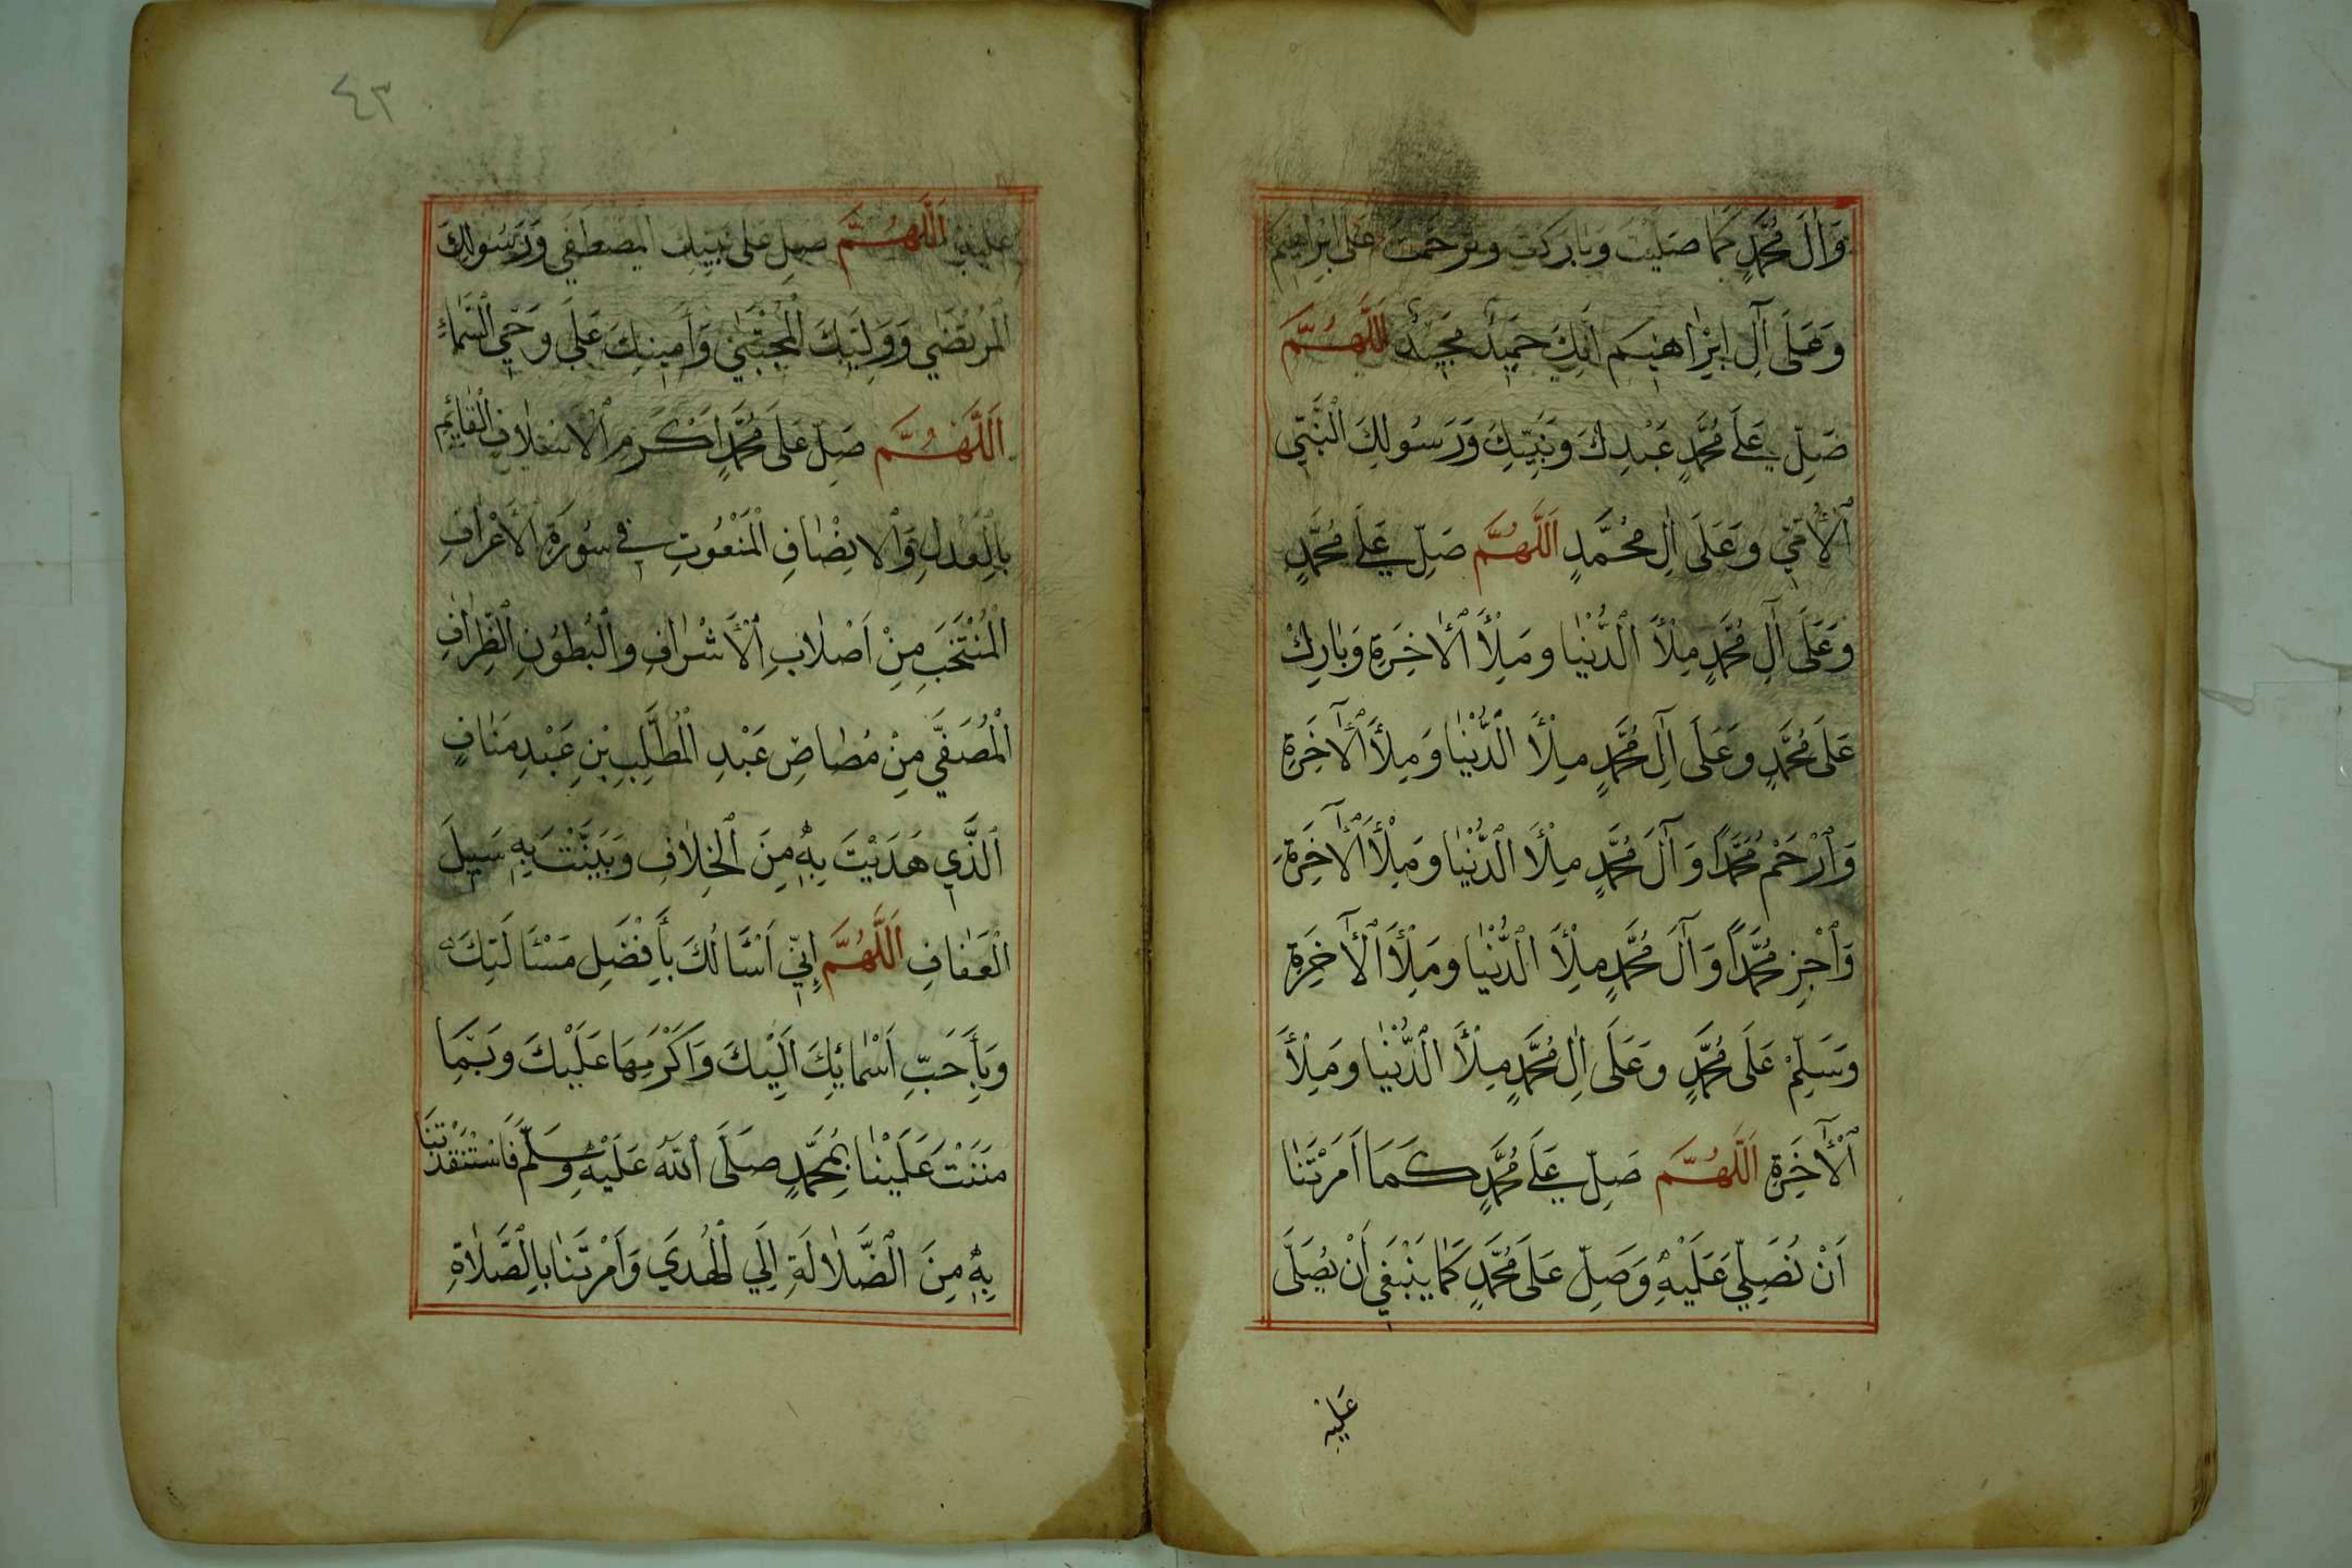 وَآلَ مُحَمَّدٍ كَمَا صَلَّيْتَ وَبَارَكْتَ وَتَرَحَّمْتَ عَلَى اِبْرَاهِيمَ
وَعَلَى آلِ اِبْرَاهِيمَ اِنَّكَ حَمِيدٌ مَجِيدٌ اَللَّهُمَّ
صَلِّ عَلَى مُحَمَّدٍ عَبْدِكَ وَنَبِيِّكَ وَرَسُولِكَ النَّبِيِّ
الْأُمِّيِّ وَعَلَى اٰلِ مُحَمَّدٍ اَللَّهُمَّ صَلِّ عَلَى مُحَمَّدٍ
وَعَلَى آلِ مُحَمَّدٍ مِلْأَ الدُّنْيَا وَمِلْأَ الْاٰخِرَةِ وَبَارِكْ
عَلَى مُحَمَّدٍ وَعَلَى آلِ مُحَمَّدٍ مِلْأَ الدُّنْيَا وَمِلْأَ الْآخِرَةِ
وَارْحَمْ مُحَمَّدًا وَآلَ مُحَمَّدٍ مِلْأَ الدُّنْيَا وَمِلْأَ الْآخِرَةِ
وَاجْزِ مُحَمَّدًا وَآلَ مُحَمَّدٍ مِلْأَ الدُّنْيَا وَمِلْأَ الْآخِرَةِ
وَسَلِّمْ عَلَى مُحَمَّدٍ وَعَلَى اٰلِ مُحَمَّدٍ مِلْأَ الدُّنْيَا وَمِلْأَ
الْآخِرَةِ اَللَّهُمَّ صَلِّ عَلَى مُحَمَّدٍ كَمَا اَمَرْتَنَا
اَنْ نُصَلِّيَ عَلَيْهِ وَصَلِّ عَلَى مُحَمَّدٍ كَمَا يَنْبَغِي اَنْ يُصَلَّى
عَلَيْهِ
٤٣
عَلَيْهِ اَللَّهُمَّ صَلِّ عَلَى نَبِيِّكَ الْمُصْطَفَى وَرَسُولِكَ
الْمُرْتَضَى وَوَلِيِّكَ الْمُجْتَبَى وَاَمِينِكَ عَلَى وَحْيِ السَّمَاءِ
اَللَّهُمَّ صَلِّ عَلَى مُحَمَّدٍ اَكْرَمِ الْاَسْلَافِ الْقَائِمِ
بِالْعَدْلِ وَالْاِنْصَافِ الْمَنْعُوتِ فِي سُورَةِ الْأَعْرَافِ
الْمُنْتَخَبِ مِنْ اَصْلَابِ الْأَشْرَافِ وَالْبُطُونِ الظِّرَافِ
الْمُصَفَّى مِنْ مُصَاصِ عَبْدِ الْمُطَّلِبِ بْنِ عَبْدِ مَنَافٍ
الَّذِي هَدَيْتَ بِهِ مِنَ الْخِلَافِ وَبَيَّنْتَ بِهِ سَبِيلَ
الْعَفَافِ اَللَّهُمَّ اِنِّي اَسْأَلُكَ بِأَفْضَلِ مَسْأَلَتِكَ
وَبِأَحَبِّ اَسْمَائِكَ اِلَيْكَ وَاَكْرَمِهَا عَلَيْكَ وَبِمَا
مَنَنْتَ عَلَيْنَا بِمُحَمَّدٍ صَلَّى اللهُ عَلَيْهِ وَسَلَّمَ فَاسْتَنْقَذْتَنَا
بِهِ مِنَ الضَّلَالَةِ اِلَى الْهُدَى وَاَمَرْتَنَا بِالصَّلَاةِ